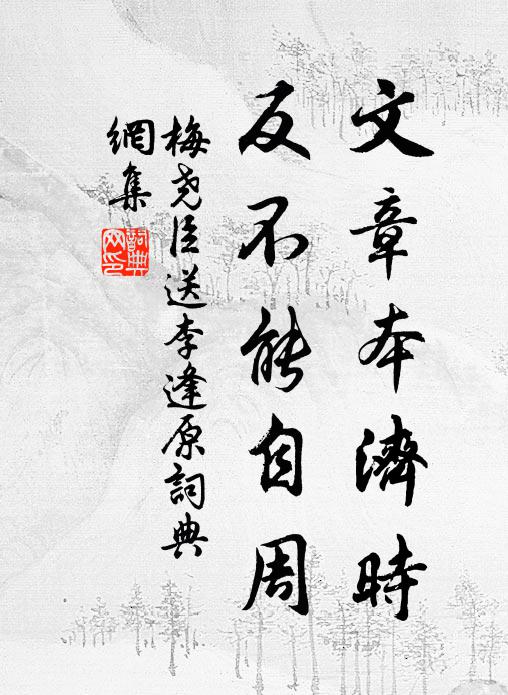 文章本濟時
反不能自周
梅堯臣送李逢原詞典
網集
詞典
网印